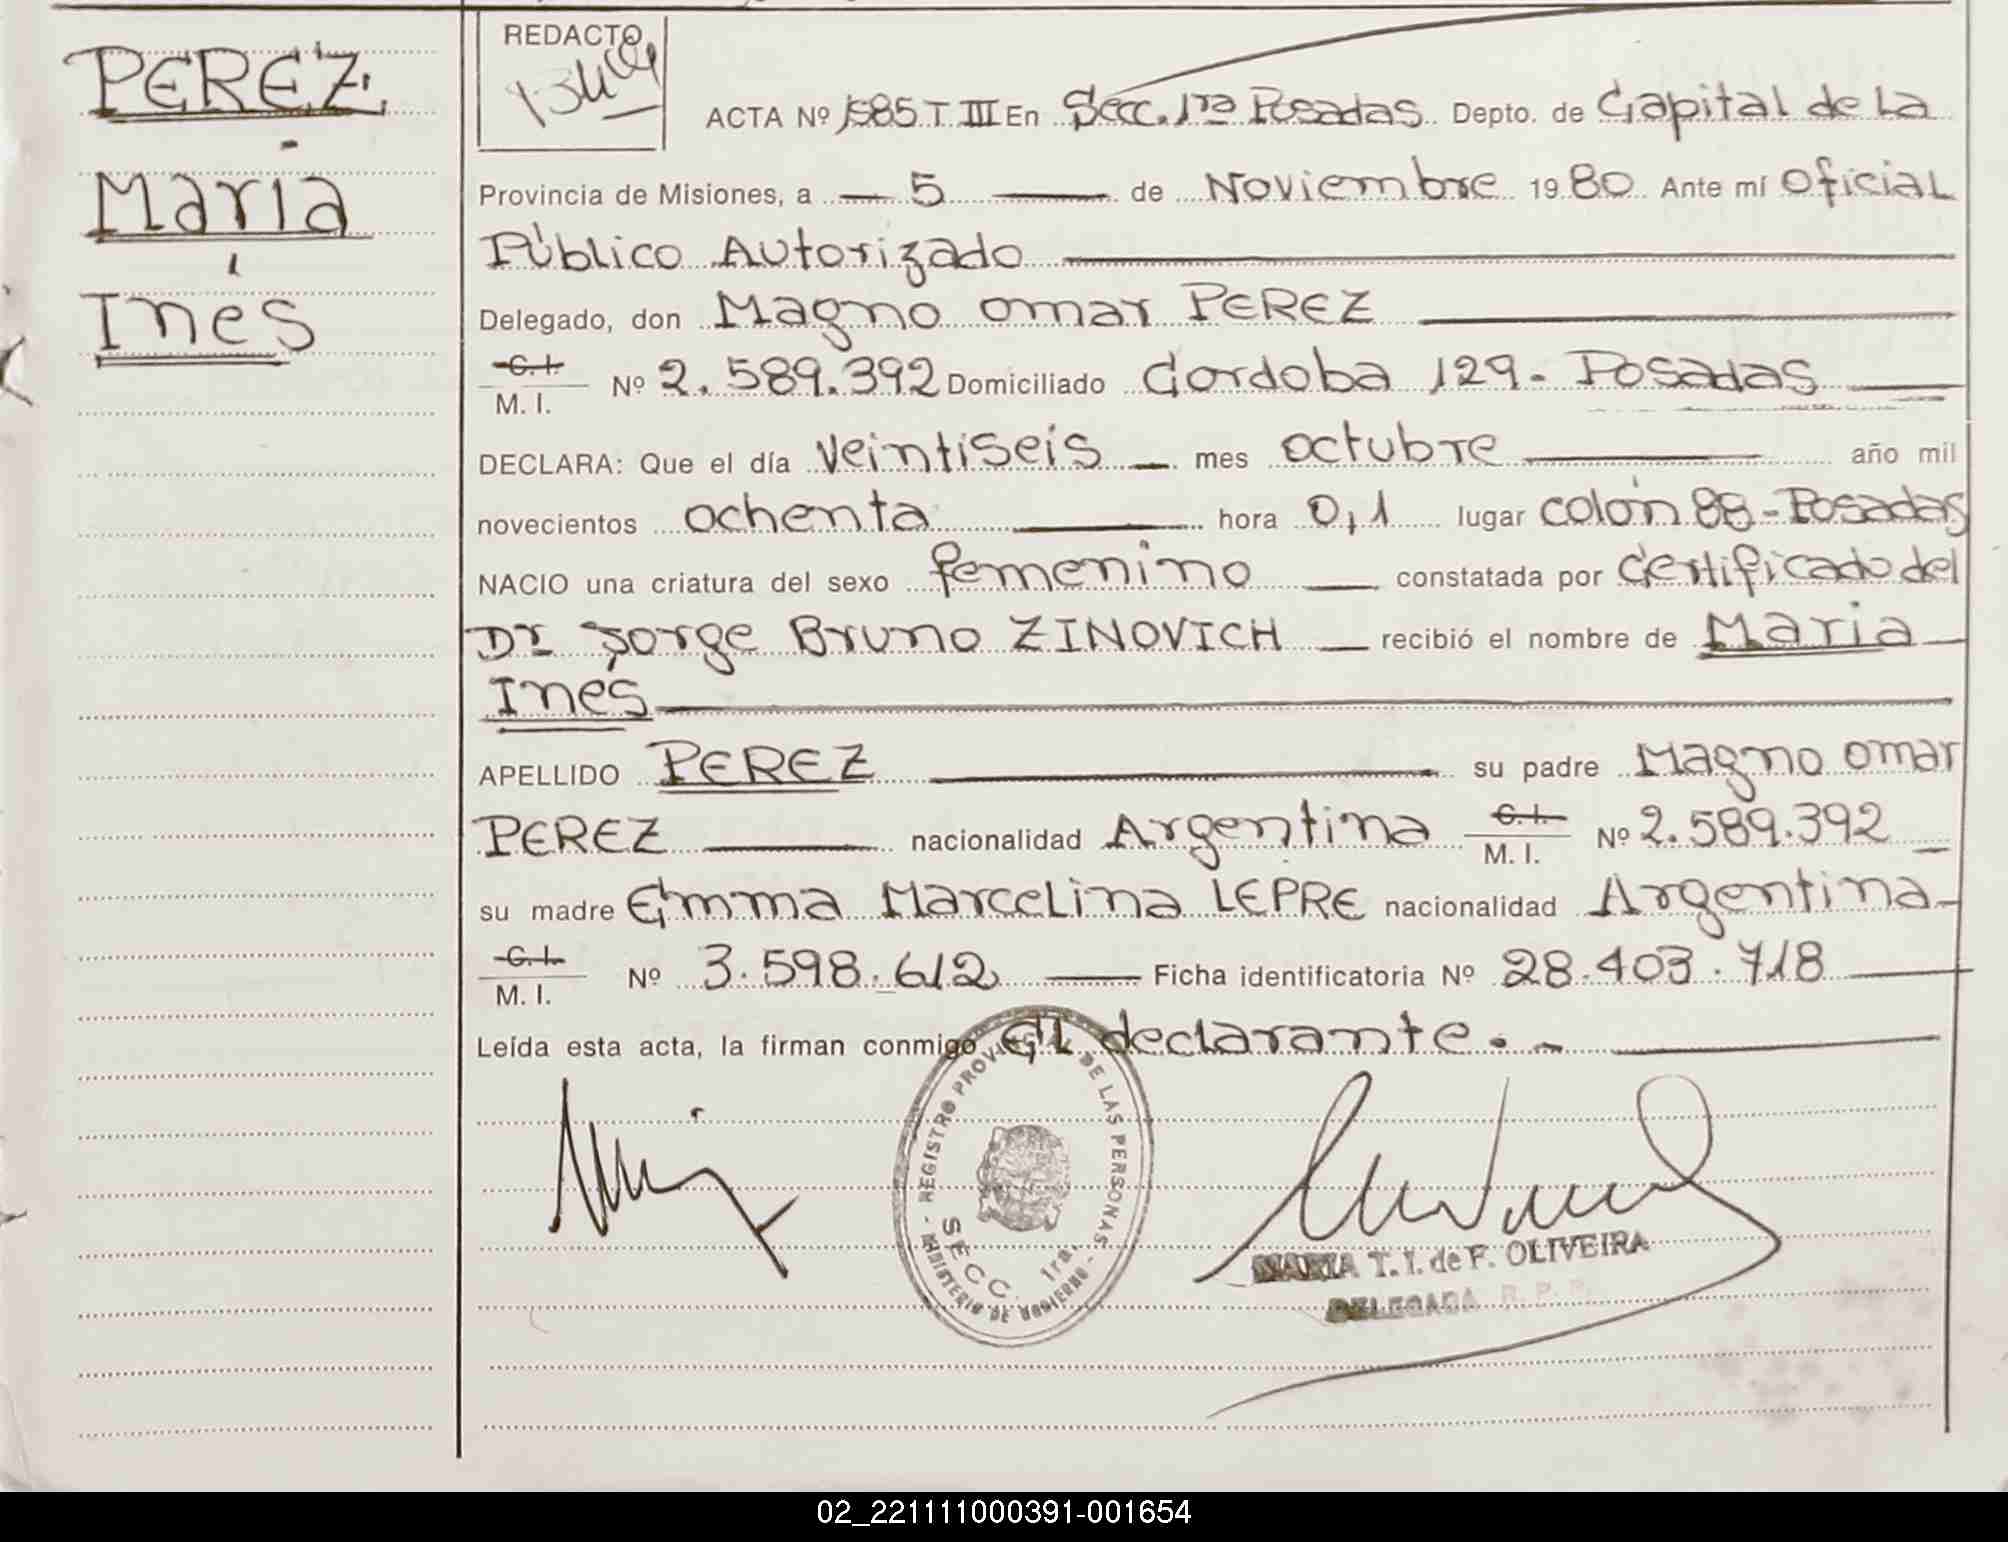 PEREZ
Maria
Inés
REDACTO
ACTA Nº 1585 T III En Secc. 1ra Posadas Depto. de Capital de La
Provincia de Misiones, a — 5 — de Noviembre 1980 Ante mí Oficial
Público Autorizado
Delegado, don Magno Omar PEREZ
C. I.
M. I. Nº 2.589.392 Domiciliado Cordoba 129. Posadas
DECLARA: Que el día Veintiseis mes octubre año mil
novecientos ochenta hora 0,1 lugar colón 88-Posadas
NACIO una criatura del sexo femenino constatada por Certificado del
Dr Jorge Bruno ZINOVICH recibió el nombre de Maria
Inés
APELLIDO PEREZ su padre Magno Omar
PEREZ nacionalidad Argentina C. I. M. I. Nº 2.589.392
su madre Emma Marcelina LEPRE nacionalidad Argentina
C. I.
M. I. Nº 3.598.612 Ficha identificatoria Nº 28.403.718
Leída esta acta, la firman conmigo El declarante.-
REGISTRO PROVINCIAL DE LAS PERSONAS - MINISTERIO DE GOBIERNO -
SECC. 1ra.
MARIA T. I. de F. OLIVEIRA
DELEGADA R. P. P.
02_221111000391-001654